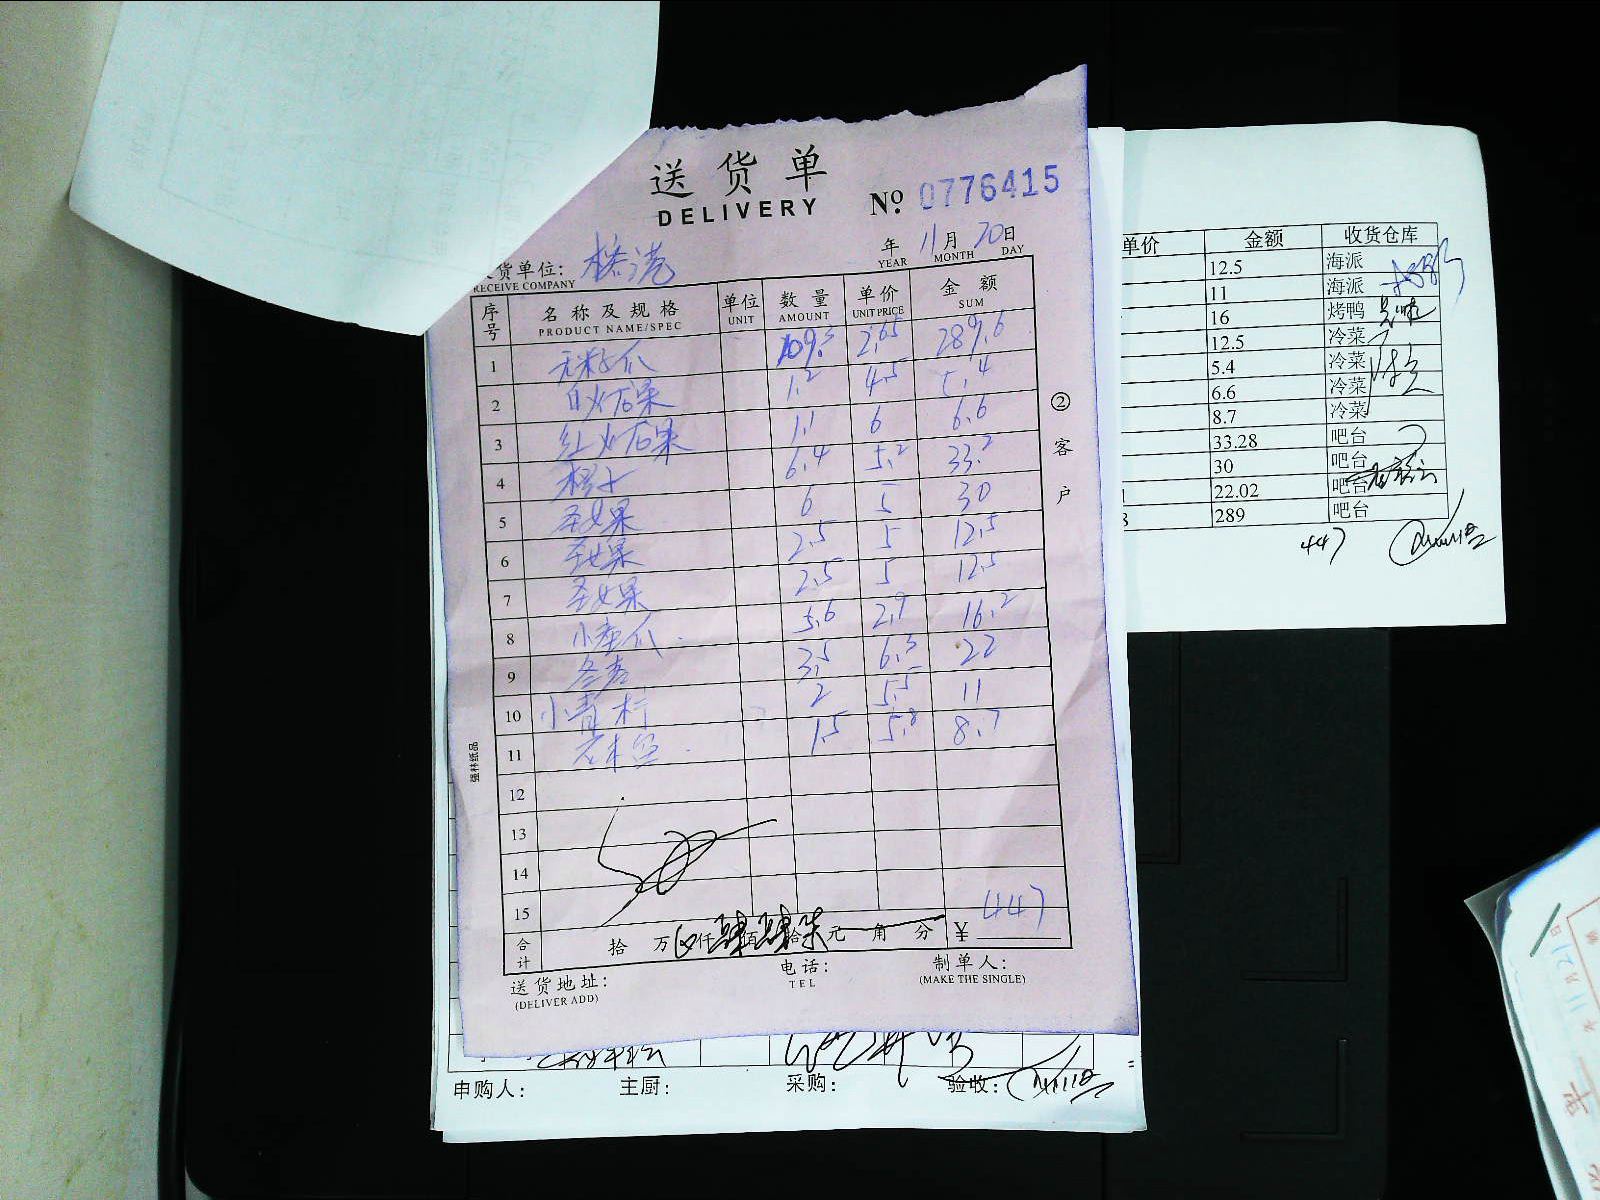 送货单
DELIVERY
№ 0776415
年 11月 20日
YEAR MONTH DAY
货单位：
RECEIVE COMPANY
序号 名称及规格 单位 数量 单价 金额
PRODUCT NAME/SPEC UNIT AMOUNT UNIT PRICE SUM
1 无籽瓜 109.3 2.65 289.6
2 白火龙果 1.2 4.5 5.4
3 红火龙果 1.1 6 6.6
4 橙子 6.4 5.2 33.2
5 圣女果 6 5 30
6 圣女果 2.5 5 12.5
7 圣女果 2.5 5 12.5
8 小座瓜 5.6 2.9 16.2
9 冬枣 3.5 6.3 22
10 小青柠 2 5.5 11
11 1.5 5.8 8.7
12
13
14
15
合计 拾 万 仟肆佰肆拾柒元 角 分 ¥ 447
送货地址：
(DELIVER ADD)
电话：
TEL
制单人：
(MAKE THE SINGLE)
②客户
强林纸品
单价 金额 收货仓库
12.5 海派
11 海派
16 烤鸭
12.5 冷菜
5.4 冷菜
6.6 冷菜
8.7 冷菜
33.28 吧台
30 吧台
22.02 吧台
289 吧台
447
申购人： 主厨： 采购： 验收：